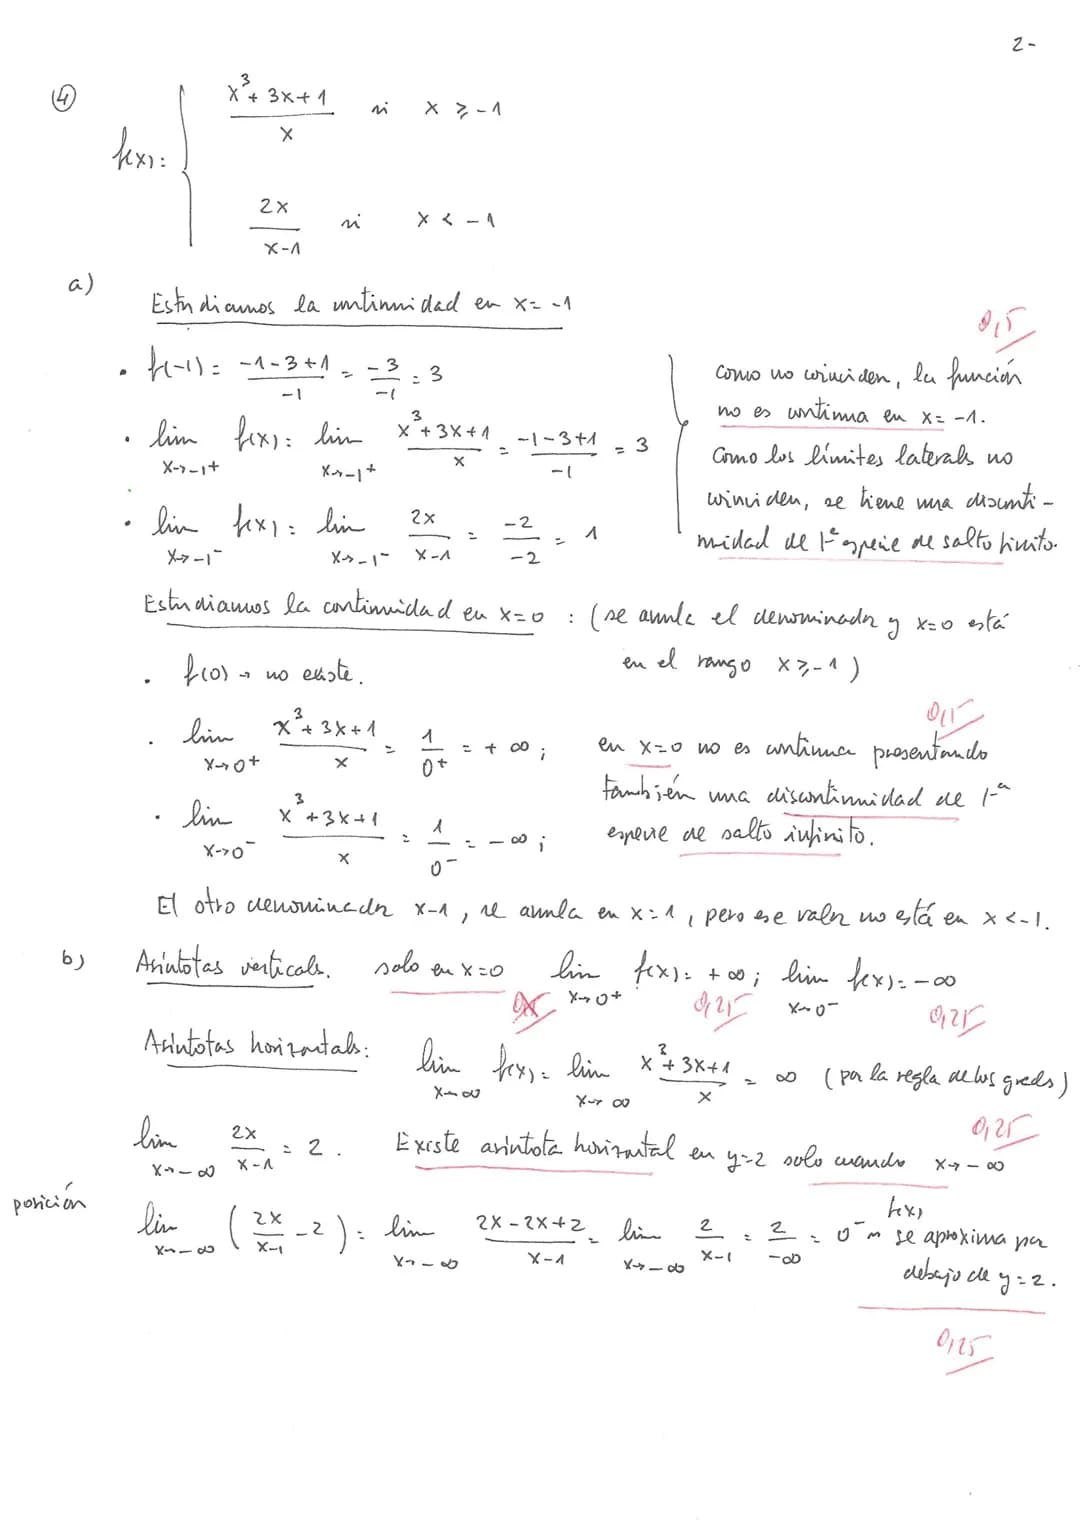 2-
④
f(x) = { (x³ + 3x + 1)/x si x ≥ -1
2x/(x-1) si x < -1
a)
Estudiamos la continuidad en x = -1
0,5
• f(-1) = (-1-3+1)/-1 = -3/-1 = 3
Como no coinciden, la función
no es continua en x = -1.
• lim x→-1⁺ f(x) = lim x→-1⁺ (x³ + 3x + 1)/x = (-1-3+1)/-1 = 3
Como los límites laterales no
coinciden, se tiene una disconti-
• lim x→-1⁻ f(x) = lim x→-1⁻ 2x/(x-1) = -2/-2 = 1
nuidad de 1ª especie de salto finito.
Estudiamos la continuidad en x=0 : (se anula el denominador y x=0 está
en el rango x ≥ -1)
• f(0) → no existe.
0,5
• lim x→0⁺ (x³ + 3x + 1)/x = 1/0⁺ = +∞ ; en x=0 no es continua presentando
también una discontinuidad de 1ª
• lim x→0⁻ (x³ + 3x + 1)/x = 1/0⁻ = -∞ ; especie de salto infinito.
El otro denominador x-1, se anula en x=1, pero ese valor no está en x < -1.
b) Asíntotas verticales. solo en x=0 lim x→0⁺ f(x) = +∞ ; lim x→0⁻ f(x) = -∞
0,25 0,25
Asíntotas horizontales: lim x→∞ f(x) = lim x→∞ (x³ + 3x + 1)/x = ∞ (por la regla de los grados)
0,25
lim x→-∞ 2x/(x-1) = 2. Existe asíntota horizontal en y=2 solo cuando x→-∞
posición
lim x→-∞ (2x/(x-1) - 2) = lim x→-∞ (2x-2x+2)/(x-1) = lim x→-∞ 2/(x-1) = 2/-∞ = 0⁻ f(x)
se aproxima por
debajo de y=2.
0,25